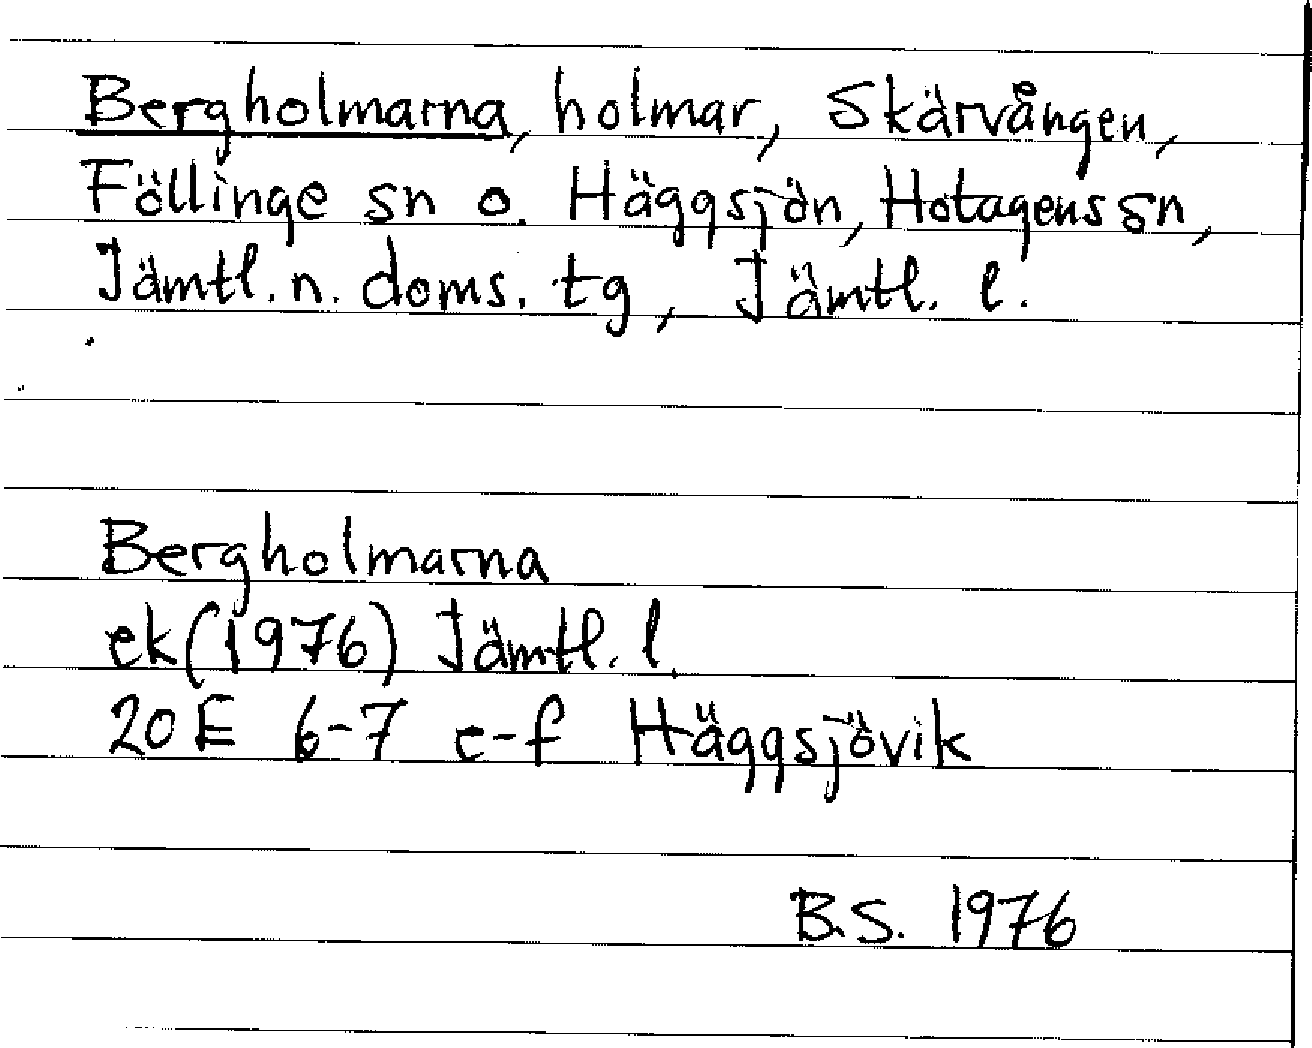 Bergholmarna, holmar, Skärvången,
Föllinge sn o. Häggsjön, Hotagens sn,
Jämtl. n. doms. tg, Jämtl. l.
Bergholmarna
ek (1976) Jämtl. l.
20E 6-7 e-f Häggsjövik
B.S. 1976